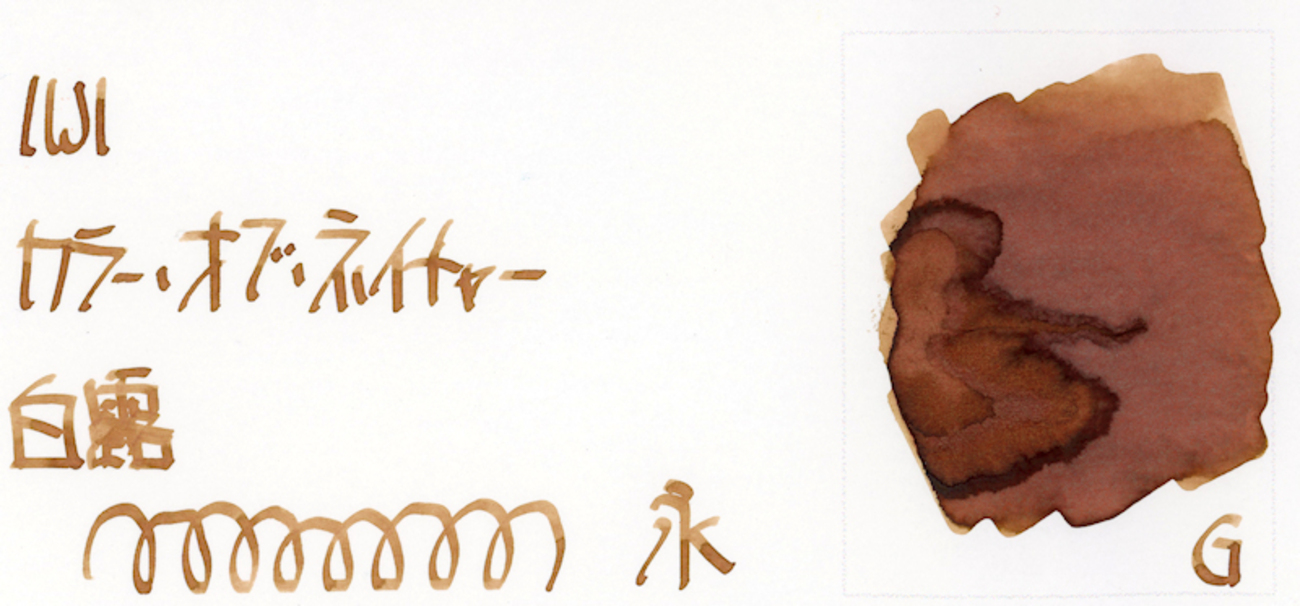 IWI
カラー・オブ・ネイチャー
白露
永
G